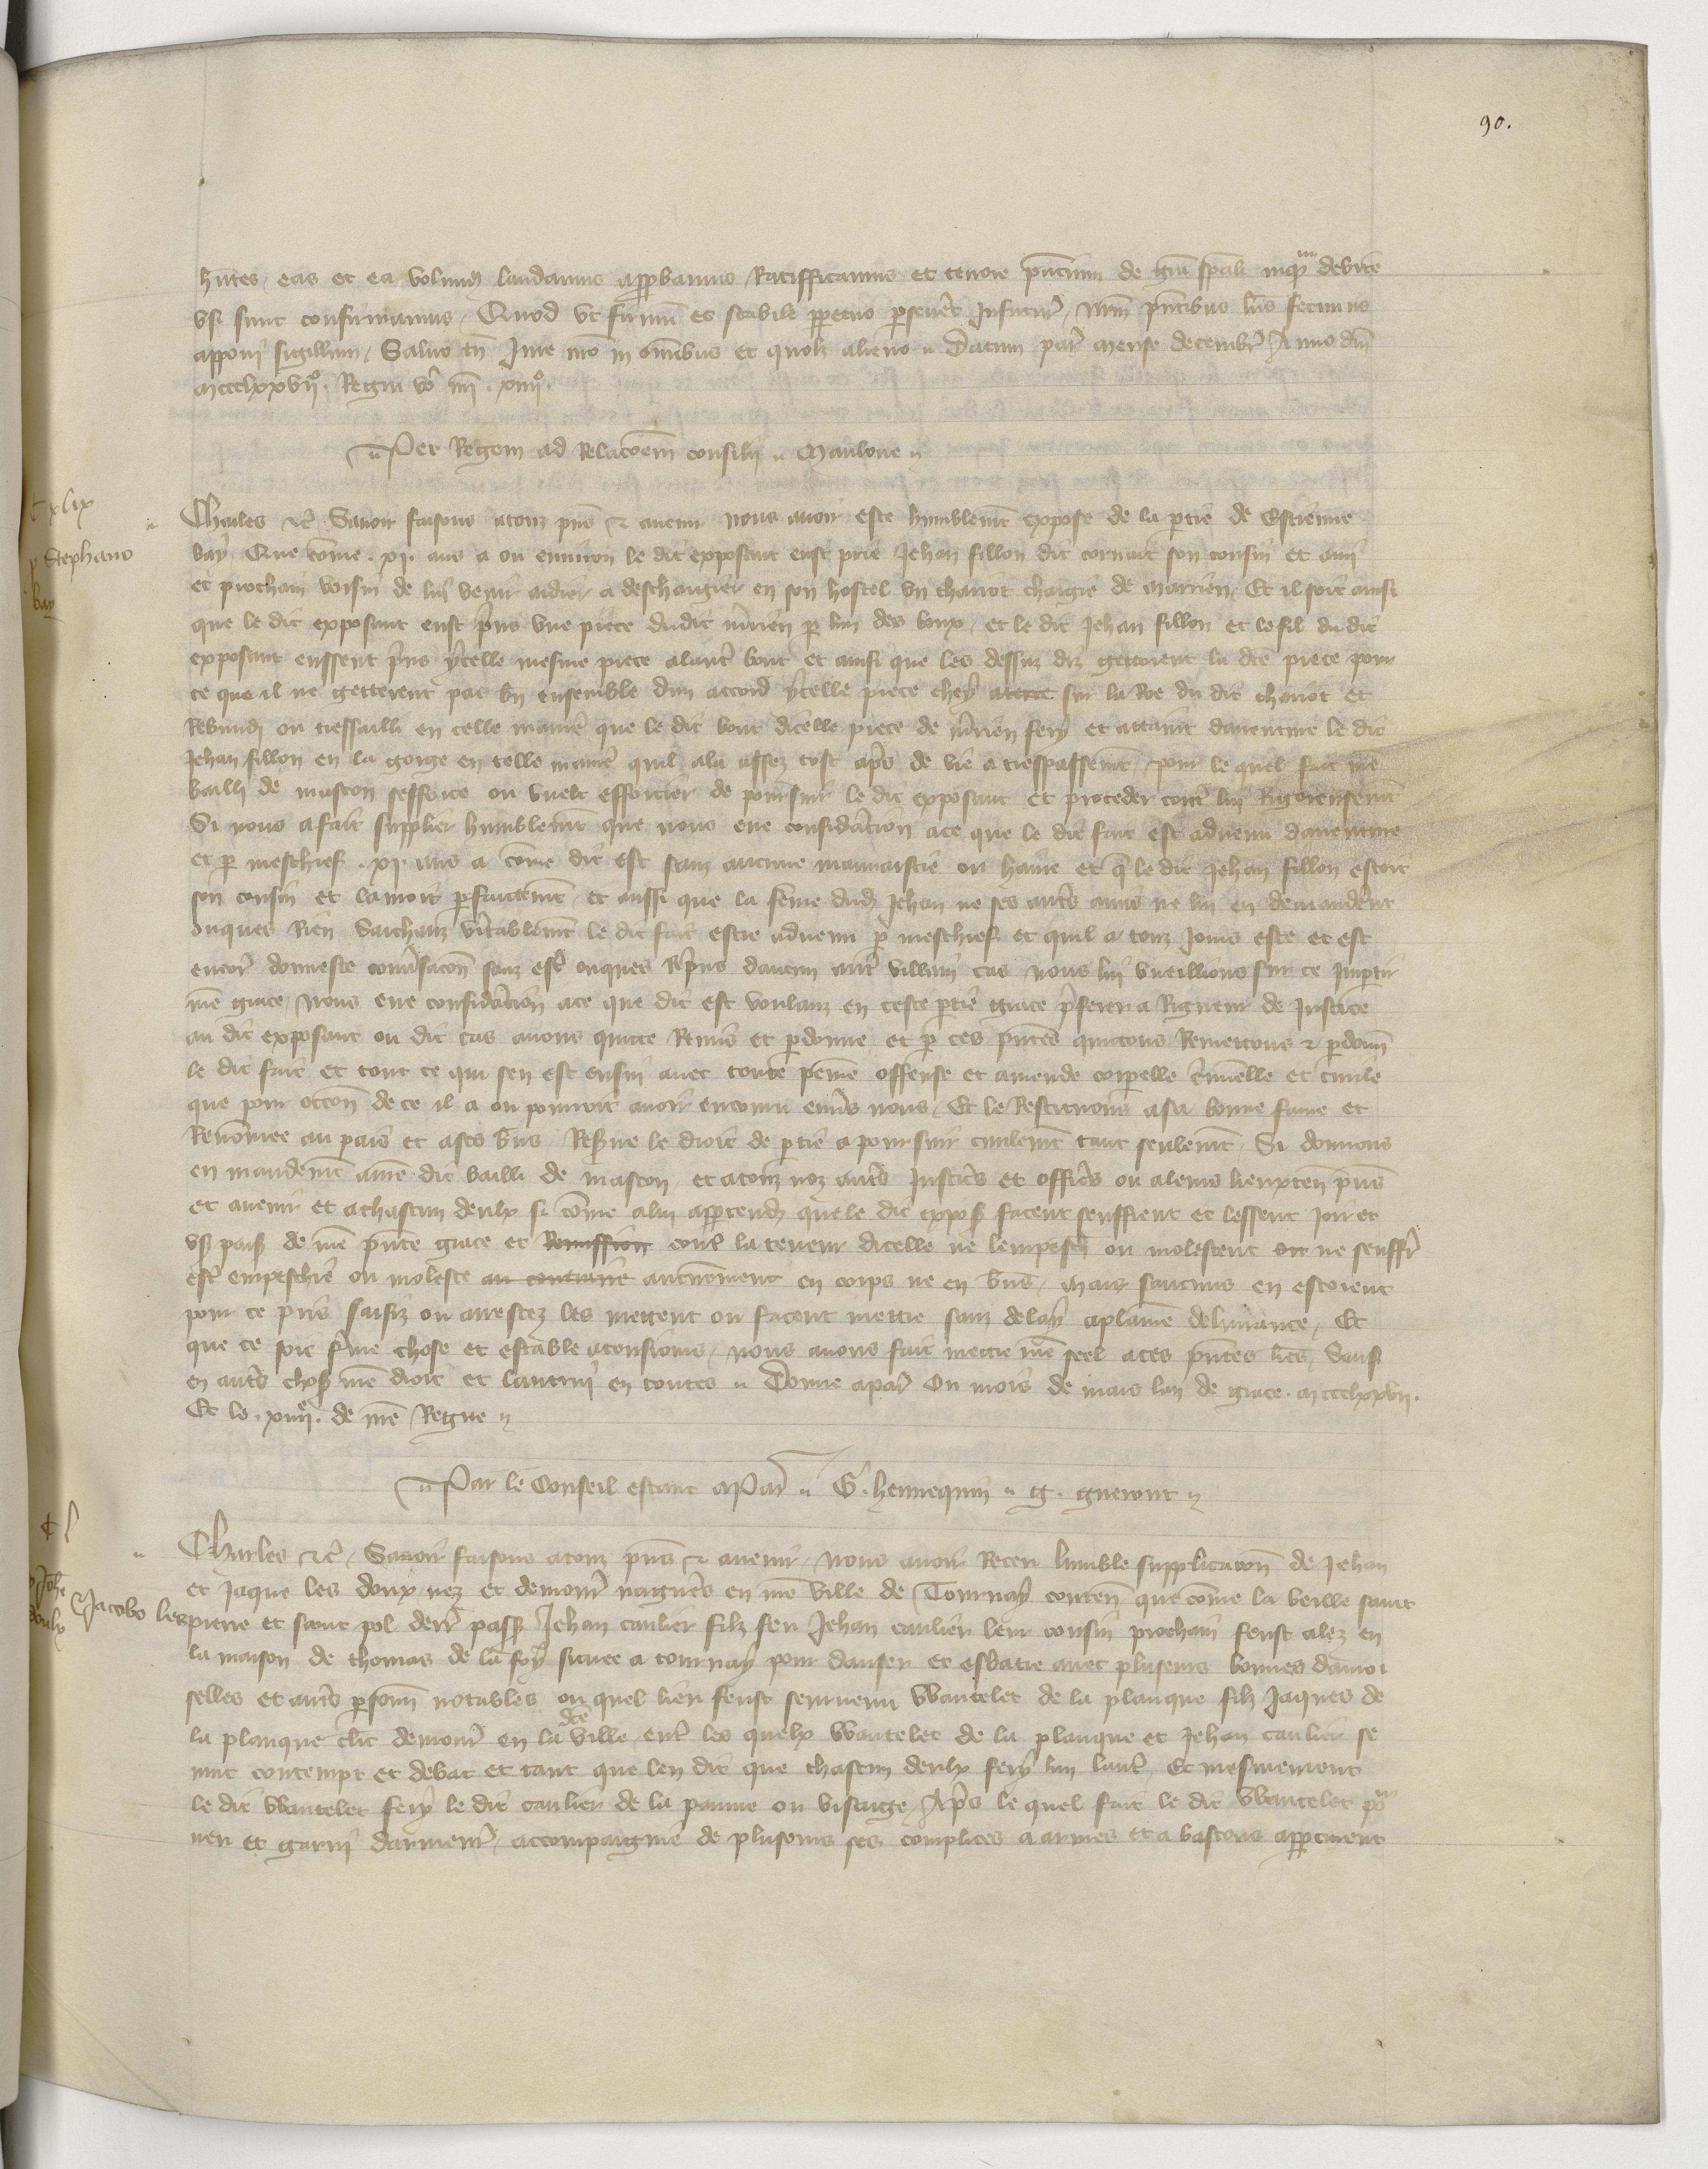 90.
hñtes, eas et ea volumus laudamus approbamus, Ratifficamus et tenore pñcium de grã spãli inqm debite
usi sunt confirmamus, Quod ut firmum et stabile perpetuo perseveret Infuturum, nr̃m pñtibus lr̃is fecimus
apponi sigillum, Salvo tñ Jure nr̃o in omnibus et quolz alieno. Datum par̃ mense decembr̃ Anno dñi
mccclxxvijo. Regni vo nr̃i xiiijo.
Per Regem ad Relacoem consilij. Maulone
Cxlix
p Stephano
bay
Charles etc̃ Savoir faisons atouz pñs et avenir nous avoir este humblemẽt expose de la partie de Estienne
bay Que cõme .xj. ans a ou environ le dit exposant eust prie Jehan fillon dit cornait son cousin et ami
et prochain voisin de lui venir aidier a deschargier en son hostel un chariot chargie de marrien, Et il soit ainsi
que le dit exposant eust prins une piece dudit mrien par lun des boux, et le dit Jehan fillon et le fil dudit
exposant eussent prins ycelle mesme piece alautr̃ bout et ainsi que les dessuz diz gettoient la dcẽ piece pour
ce que il ne getterent pas bñ ensemble dun accord ycelle piece chey aterre sur la Roe du dit chariot et
Rebundi ou tressailli en telle manier̃ que le dit bout dicelle piece de mrien fery et attaint daventure le dit
Jehan fillon en la gorge en telle manier̃ quil ala assez tost apr̃s de vie a trespassemẽt, pour le quel fait nr̃e
bailli de mascon sefforce ou vuelt efforcier de poursuir le dit exposant et proceder contr̃ lui Rigoreusemẽt
Si nous a fait supplier humblemẽt que nous eue considẽracion ace que le dit fait est advenu daventure
et par meschief .xj. ans a cõme dit est sanz aucune mauvaistie ou haine et que le dit Jehan fillon estoit
son cousin et lamoit parfaictemẽt, et aussi que la feme dudit Jehan ne ses autr̃s amis ne lui en demandẽrent
onques Rien Saichanz vẽritablemẽt le dit fait estre advenu par meschief et quil a touz Jours este et est
encor̃ domeste conversacõn sanz estr̃ onques Repris daucun autr̃ villain cas nous lui vueillions sur ce Impartir
nr̃e grace, Nous eue considẽracion ace que dit est voulanz en ceste partie grace preferer a Rigueur de Justice
au dit exposant ou dit cas avons quitte Remis et pardonne et par ces pñtes quittons Remettons et pardonñ
le dit fait et tout ce qui sen est ensui avec toute peine offense et amende corporelle criminelle et civile
que pour occõn de ce il a ou pourroit avoir encouru envers nous, Et le Restituons asa bonne fame et
Renõmee au pais et ases biẽs Reserve le droit de partie apoursuir civilemẽt tant seulemẽt, Si donnons
en mandemẽt anr̃e dit bailli de mascon et atouz noz autr̃s Justicr̃s et officr̃s ou aleurs lieuxtenñ pñs
et avenir et achascun deulx si cõme alui appartendra que le dit expost̃ facent seuffrent et lessent Joir et
user paisiblẽ de nr̃e pñte grace et Remission contr̃ la teneur dicelle ne lempeschẽ ou molestent ou ne seuffr̃
estr̃ empeschie ou moleste au contraire autremẽment en corps ne en biẽs, Mais saucuns en estoient
pour ce pris saisiz ou arrestez les mettent ou facent mettre sanz delay aplaine delivrance, Et
que ce soit ferme chose et estable atousiours, nous avons fait mettre nr̃e seel aces pñtes lr̃es, Sauf
en autr̃s choses nr̃e droit et lautrui en toutes. Donne apar̃ Ou mois de mars lan de grace. mccclxxvij.
Et le .xiiije. de nr̃e Regne
Par le Conseil estant aPar̃. G. hennequin. g. guerout
Cl
p Johe
et Jacobo les
doulx
Charles etc̃, Savoir faisons atouz pñs et avenir, nous avoir Receu lumble supplicacõn de Jehan
et Jaque les doux nez et demour̃ nagueres en nr̃e ville de Tournay contenñ que cõme la veille saint
pierre et saint pol derr̃ passe Jehan caulier filz feu Jehan caulier leur cousin prochain feust alez en
la maison de thomas de la foy situee a tournay pour danser et esbatre avec pluseurs bonnes damoi
selles et autr̃s personñ notables, ou quel lieu feust seurvenu Wautelet de la planque filz Jaques de
la planque clic demour̃ en la dcẽ ville, entr̃ les quelx Wautelet de la planque et Jehan caulier se
mut contempt et debat et tant que len dit que chascun deulx fery lun lautr̃, Et mesmement
le dit Wautelet fery le dit caulier de la paume ou visaige, Apr̃s le quel fait le dit Wautelet pour
veu et garni darmeur̃, accompaigne de pluseurs ses complices a armes et a bastons appertment